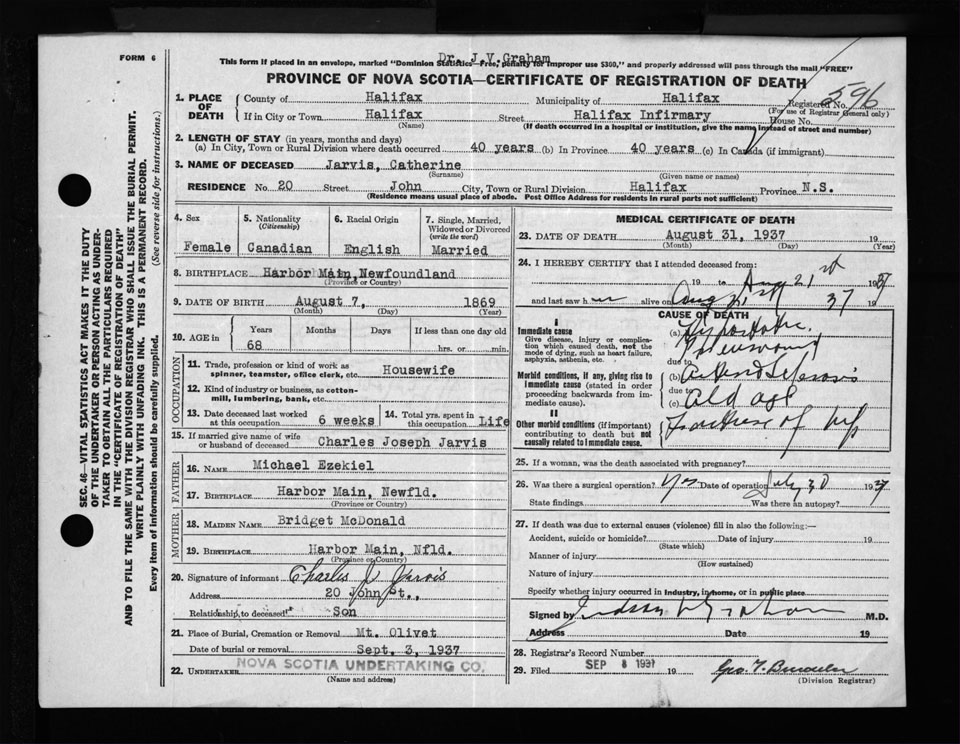 FORM 6
Dr. J. V. Graham
This form if placed in an envelope, marked "Dominion Statistics—Free, penalty for improper use $300," and properly addressed will pass through the mail "FREE"
PROVINCE OF NOVA SCOTIA—CERTIFICATE OF REGISTRATION OF DEATH
1. PLACE OF DEATH
County of Halifax Municipality of Halifax Registered No. 596
(For use of Registrar General only)
If in City or Town Halifax Street Halifax Infirmary House No.
(Name) (If death occurred in a hospital or institution, give the name instead of street and number)
2. LENGTH OF STAY (in years, months and days)
(a) In City, Town or Rural Division where death occurred 40 years (b) In Province 40 years (c) In Canada (if immigrant)
3. NAME OF DECEASED Jarvis, Catherine
(Surname) (Given name or names)
RESIDENCE No. 20 Street John City, Town or Rural Division Halifax Province N.S.
(Residence means usual place of abode. Post Office Address for residents in rural parts not sufficient)
4. Sex 5. Nationality 6. Racial Origin 7. Single, Married, Widowed or Divorced
(Citizenship) (write the word)
Female Canadian English Married
8. BIRTHPLACE Harbor Main, Newfoundland
(Province or Country)
9. DATE OF BIRTH August 7, 1869
(Month) (Day) (Year)
10. AGE in Years Months Days If less than one day old
68 hrs. or min.
OCCUPATION
11. Trade, profession or kind of work as spinner, teamster, office clerk, etc. Housewife
12. Kind of industry or business, as cotton-mill, lumbering, bank, etc.
13. Date deceased last worked at this occupation 6 weeks 14. Total yrs. spent in this occupation Life
15. If married give name of wife or husband of deceased Charles Joseph Jarvis
FATHER
16. NAME Michael Ezekiel
17. BIRTHPLACE Harbor Main, Newfld.
(Province or Country)
MOTHER
18. MAIDEN NAME Bridget McDonald
19. BIRTHPLACE Harbor Main, Nfld.
(Province or Country)
20. Signature of informant Charles J. Jarvis
Address 20 John St.,
Relationship to deceased Son
21. Place of Burial, Cremation or Removal Mt. Olivet
Date of burial or removal Sept. 3, 1937
22. UNDERTAKER NOVA SCOTIA UNDERTAKING CO.
(Name and address)
MEDICAL CERTIFICATE OF DEATH
23. DATE OF DEATH August 31, 1937 19
(Month) (Day) (Year)
24. I HEREBY CERTIFY that I attended deceased from:
19 to Aug 21st 1937
and last saw h er alive on Aug 21st 37 19
CAUSE OF DEATH
I
Immediate cause
Give disease, injury or complication which caused death, not the mode of dying, such as heart failure, asphyxia, asthenia, etc.
(a) Hypostatic Pneumonia
due to
Morbid conditions, if any, giving rise to immediate cause (stated in order proceeding backwards from immediate cause).
(b) Arteriosclerosis
due to
(c) Old age
II
Other morbid conditions (if important) contributing to death but not causally related to immediate cause.
Fracture of hip
25. If a woman, was the death associated with pregnancy?
26. Was there a surgical operation? Yes Date of operation July 30 1937
State findings Was there an autopsy?
27. If death was due to external causes (violence) fill in also the following:—
Accident, suicide or homicide? Date of injury 19
(State which)
Manner of injury
(How sustained)
Nature of injury
Specify whether injury occurred in Industry, in home, or in public place
Signed by Graham M.D.
Address Date 19
28. Registrar's Record Number
29. Filed SEP 8 1937 19
(Division Registrar)
SEC. 46—VITAL STATISTICS ACT MAKES IT THE DUTY
OF THE UNDERTAKER OR PERSON ACTING AS UNDER-
TAKER TO OBTAIN ALL THE PARTICULARS REQUIRED
IN THE "CERTIFICATE OF REGISTRATION OF DEATH"
AND TO FILE THE SAME WITH THE DIVISION REGISTRAR WHO SHALL ISSUE THE BURIAL PERMIT.
WRITE PLAINLY WITH UNFADING INK. THIS IS A PERMANENT RECORD.
Every item of information should be carefully supplied. (See reverse side for instructions.)